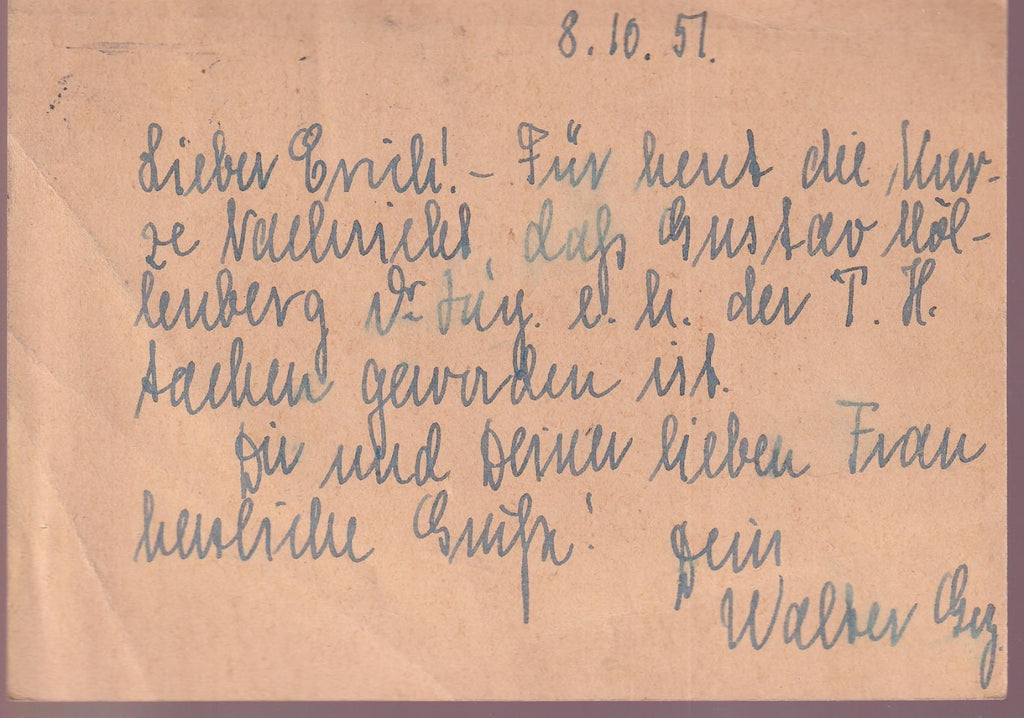 8.10.51.
Lieber Erich! – Für heut die kur-
ze Nachricht, daß Gustav Möl-
lenberg Dr. Ing. e. h. der T. H.
Aachen geworden ist.
Dir und Deiner lieben Frau
herzliche Grüße! Dein
Walter